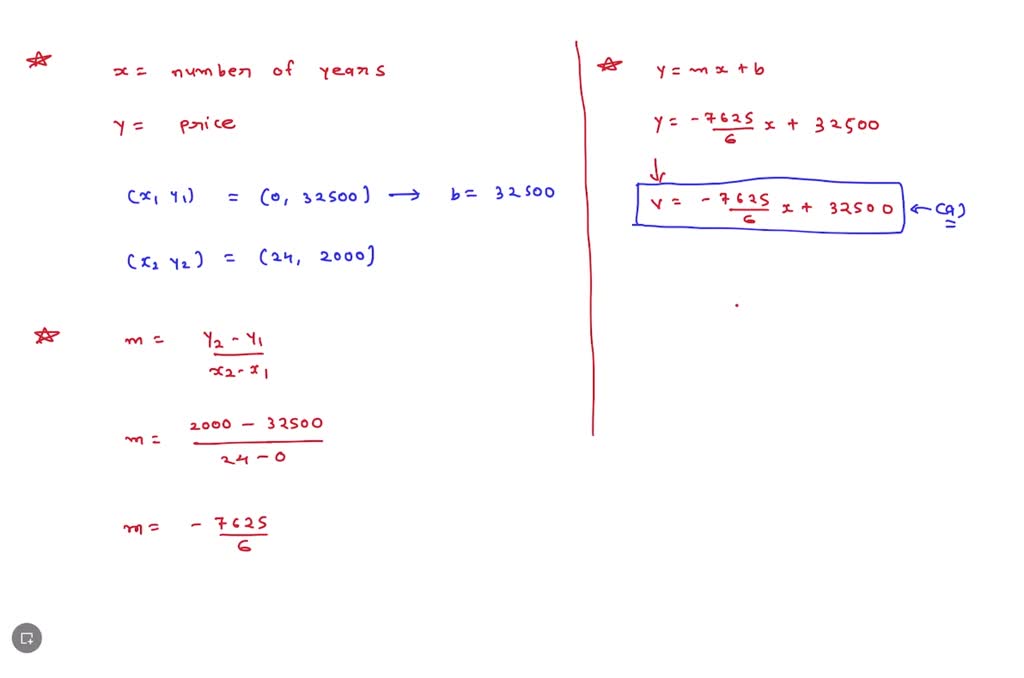 x = number of years
y = price
(x1 y1) = (0, 32500) → b = 32500
(x2 y2) = (24, 2000)
m = y2 - y1 / x2 - x1
m = 2000 - 32500 / 24 - 0
m = - 7625 / 6
y = mx + b
y = - 7625 / 6 x + 32500
↓
v = - 7625 / 6 x + 32500 ← (a)